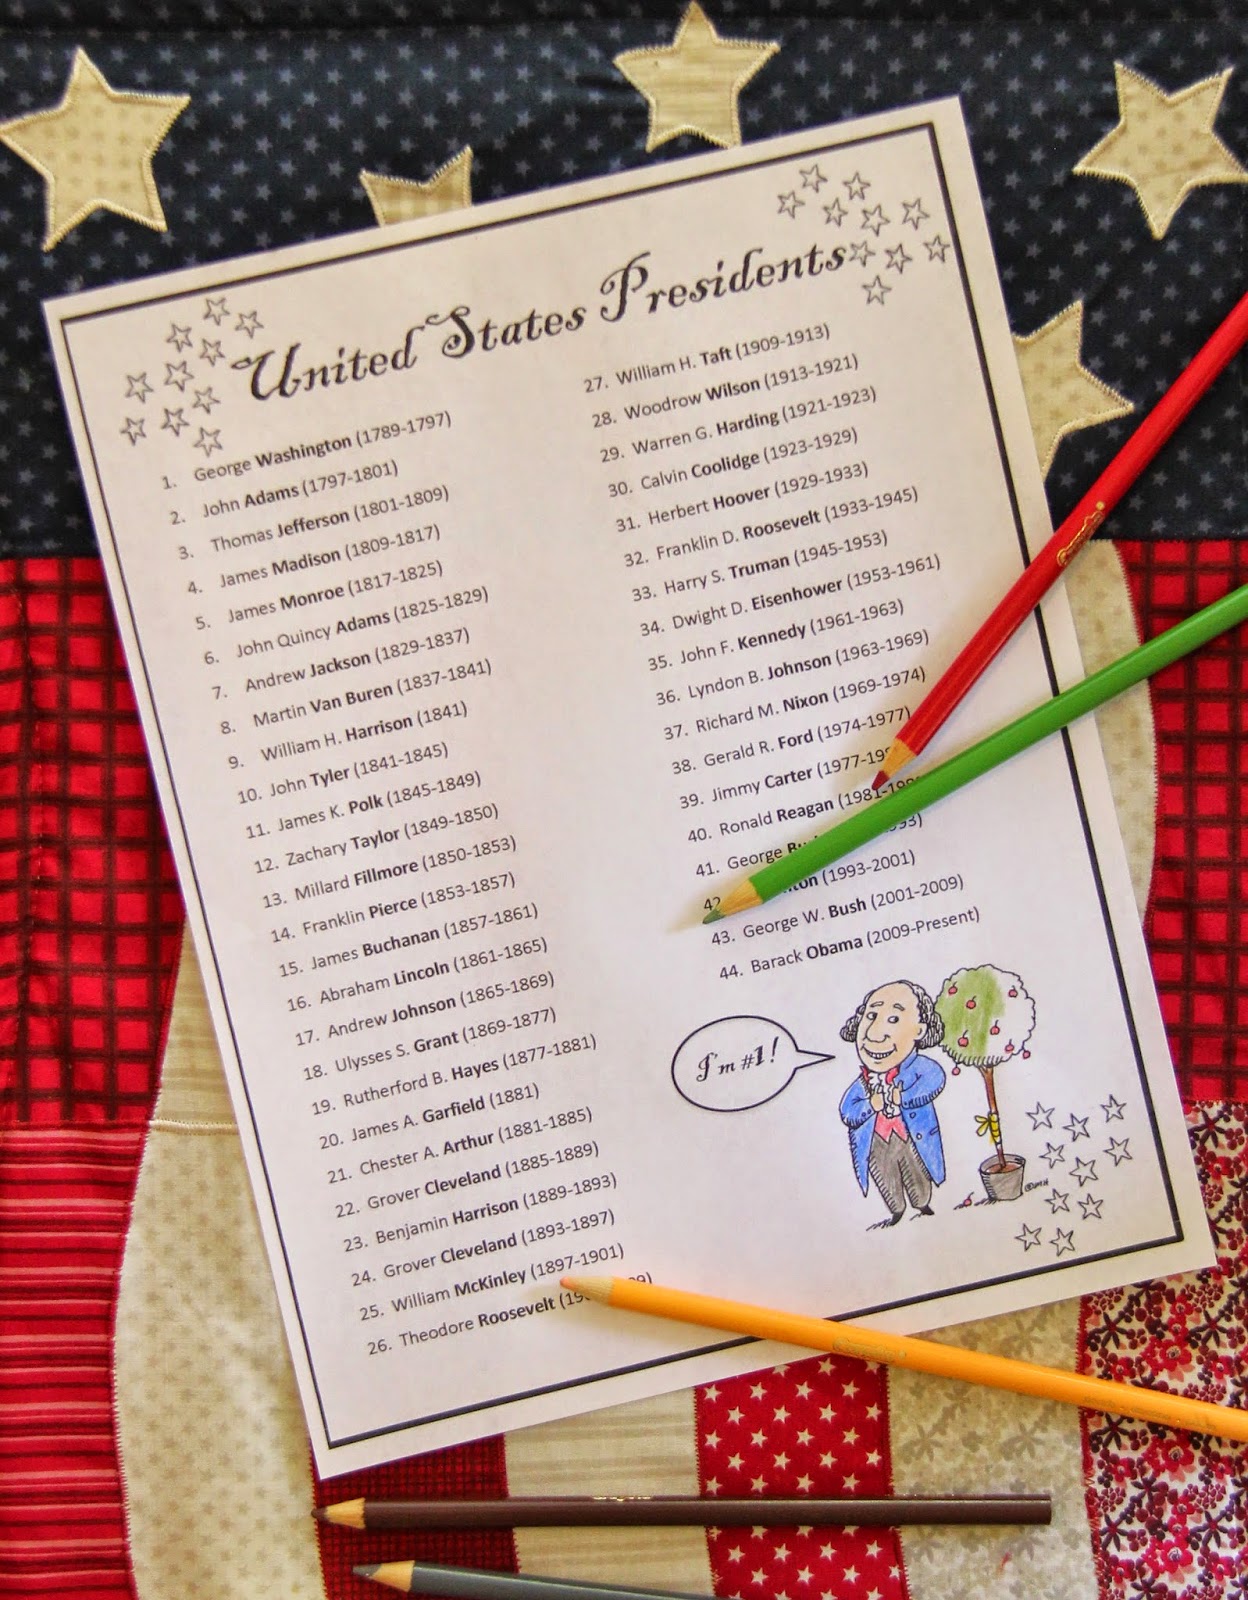 United States Presidents
1. George Washington (1789-1797)
2. John Adams (1797-1801)
3. Thomas Jefferson (1801-1809)
4. James Madison (1809-1817)
5. James Monroe (1817-1825)
6. John Quincy Adams (1825-1829)
7. Andrew Jackson (1829-1837)
8. Martin Van Buren (1837-1841)
9. William H. Harrison (1841)
10. John Tyler (1841-1845)
11. James K. Polk (1845-1849)
12. Zachary Taylor (1849-1850)
13. Millard Fillmore (1850-1853)
14. Franklin Pierce (1853-1857)
15. James Buchanan (1857-1861)
16. Abraham Lincoln (1861-1865)
17. Andrew Johnson (1865-1869)
18. Ulysses S. Grant (1869-1877)
19. Rutherford B. Hayes (1877-1881)
20. James A. Garfield (1881)
21. Chester A. Arthur (1881-1885)
22. Grover Cleveland (1885-1889)
23. Benjamin Harrison (1889-1893)
24. Grover Cleveland (1893-1897)
25. William McKinley (1897-1901)
26. Theodore Roosevelt
27. William H. Taft (1909-1913)
28. Woodrow Wilson (1913-1921)
29. Warren G. Harding (1921-1923)
30. Calvin Coolidge (1923-1929)
31. Herbert Hoover (1929-1933)
32. Franklin D. Roosevelt (1933-1945)
33. Harry S. Truman (1945-1953)
34. Dwight D. Eisenhower (1953-1961)
35. John F. Kennedy (1961-1963)
36. Lyndon B. Johnson (1963-1969)
37. Richard M. Nixon (1969-1974)
38. Gerald R. Ford (1974-1977)
39. Jimmy Carter
40. Ronald Reagan
41. George
42 (1993-2001)
43. George W. Bush (2001-2009)
44. Barack Obama (2009-Present)
I'm #1!